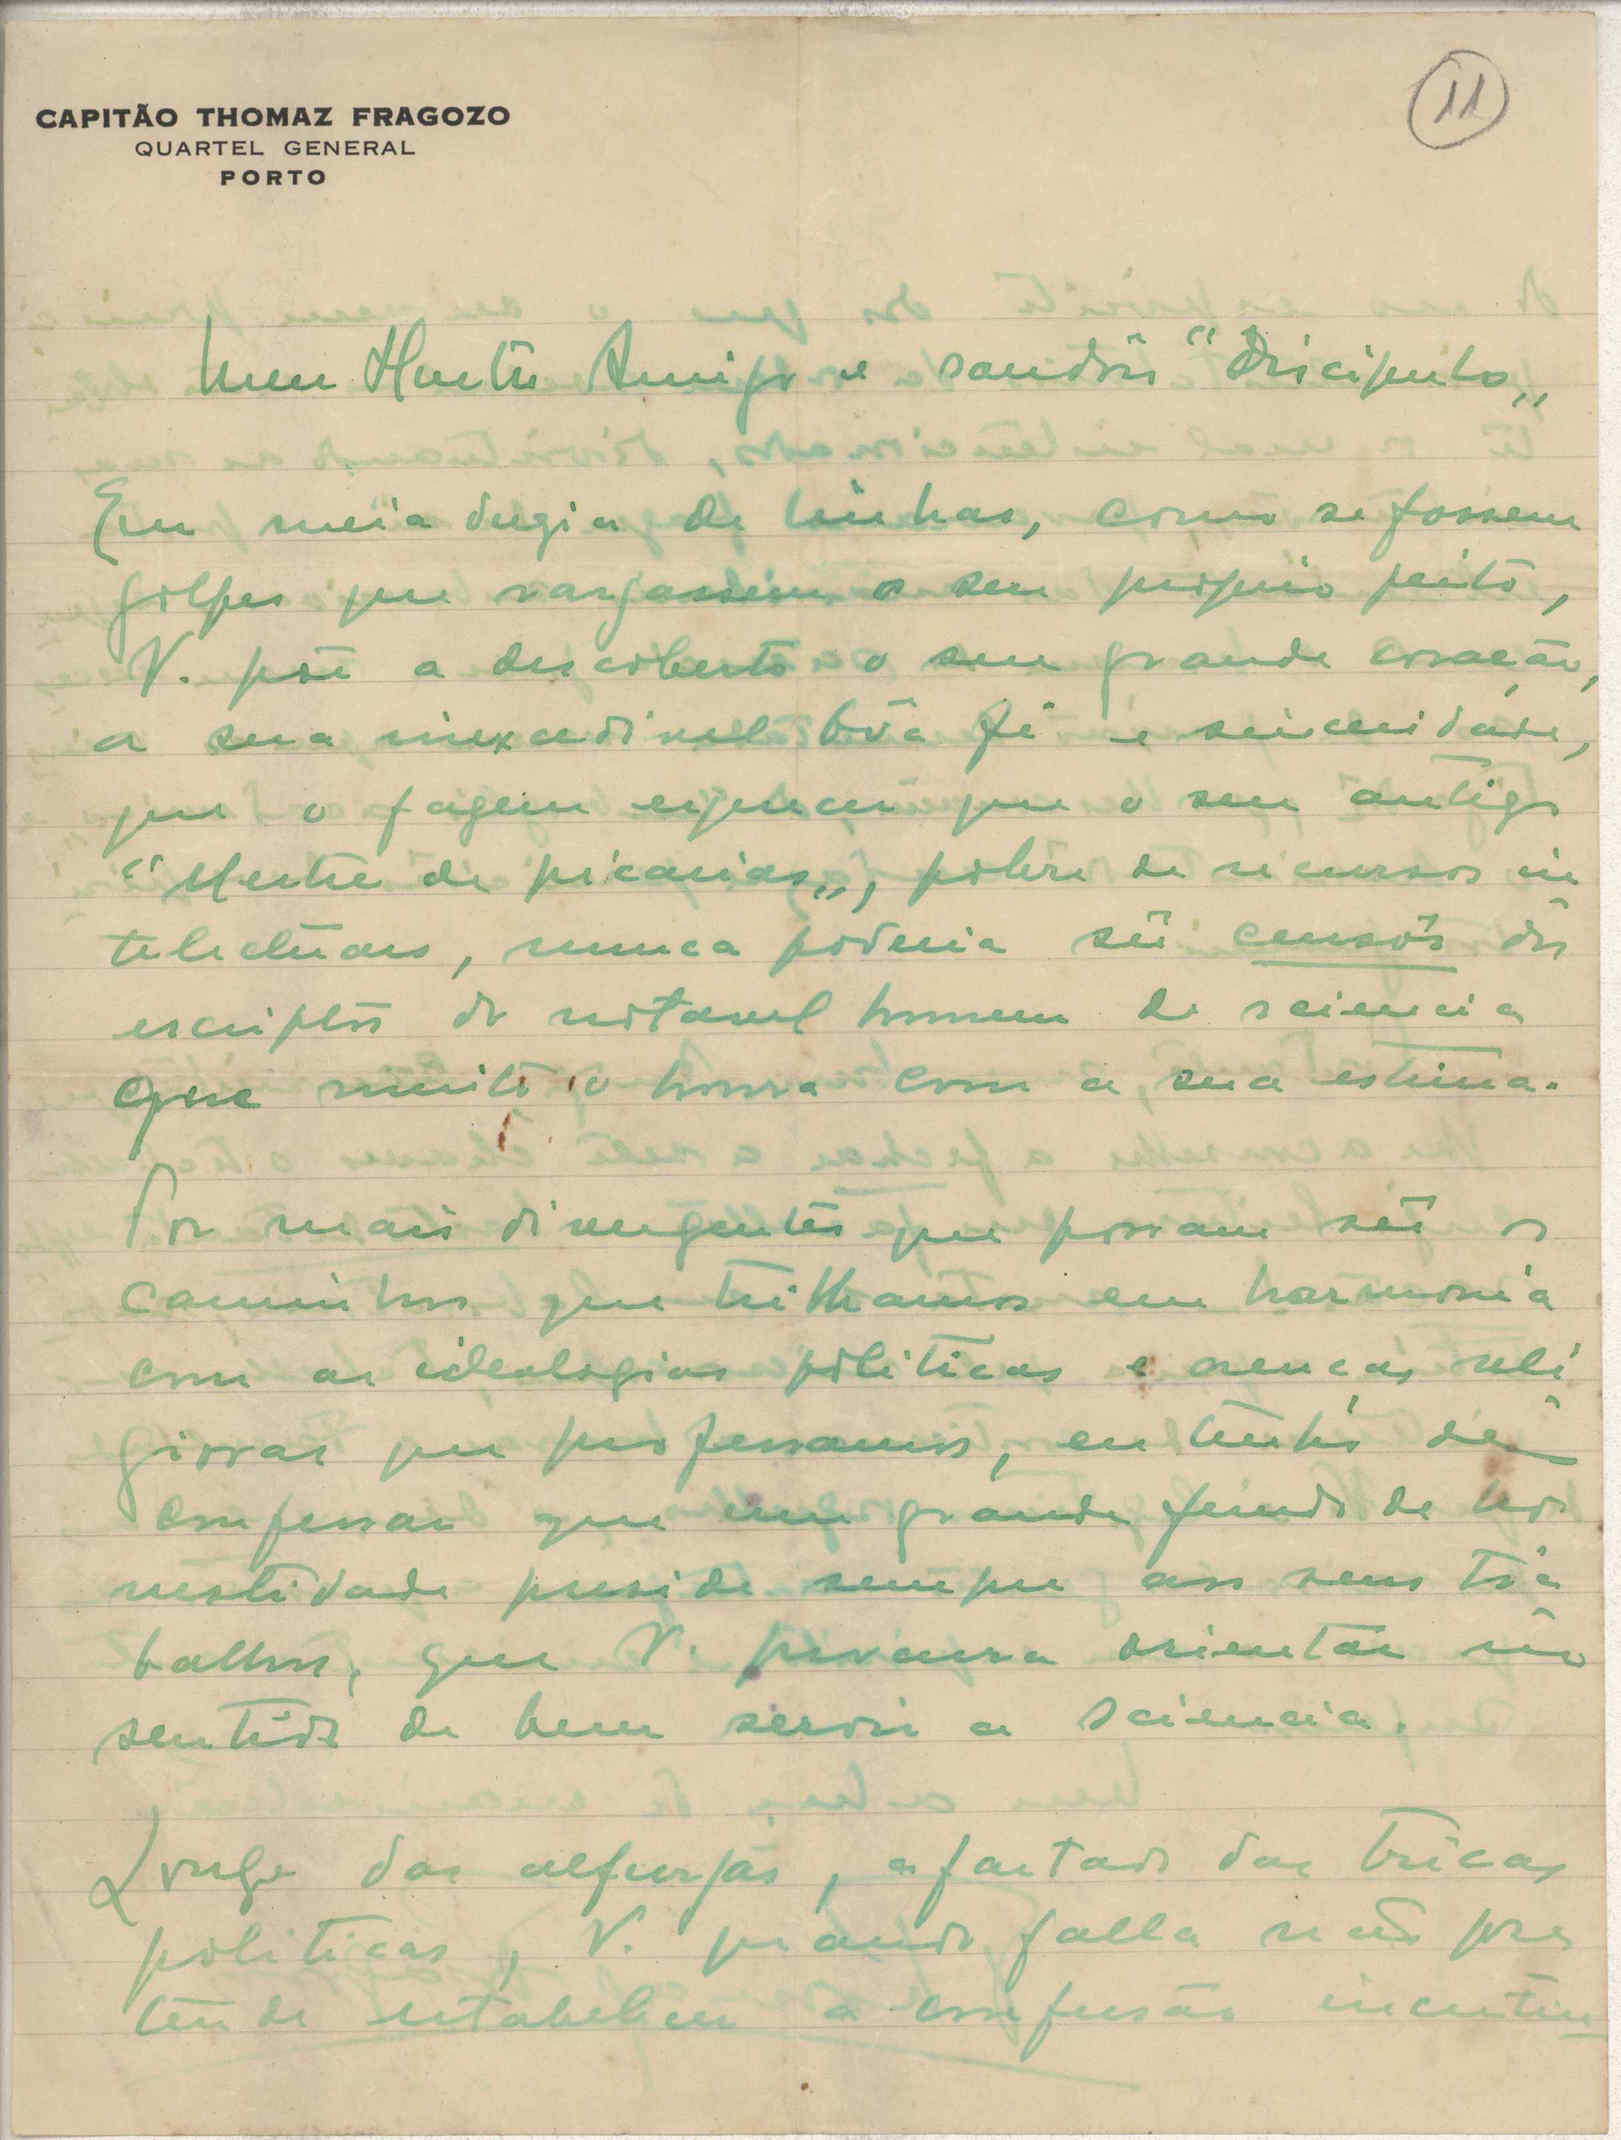 CAPITÃO THOMAZ FRAGOZO
QUARTEL GENERAL
PORTO
11
Meu Illustre Amigo e saudoso "Discipulo„
Em meia duzia de linhas, como se fossem
golpes que rasgassem o seu proprio peito,
V. põe a descoberto o seu grande coração,
a sua inexcedivel bôa fé e sinceridade,
que o fazem esquecer que o seu antigo
"Mestre de picarias„, pobre de recursos in
telectuaes, nunca poderia sêr censôr dos
escriptos do notavel homem de sciencia
que muito o honra com a sua estima.
Por mais divergentes que possam sêr os
caminhos que trilhamos em harmonia
com as ideologias politicas e crenças reli
giosas que professamos, eu tenho de
confessar que um grande fundo de ho
nestidade preside sempre aos seus tra
balhos, que V. procura orientar no
sentido de bem servir a sciencia.
Longe das alfurjas, afastado das tricas
politicas, V. quando falla não pre
tende estabelecer a confusão